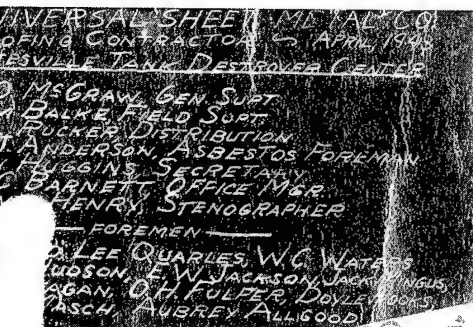 NIVERSAL SHEET METAL CO
OFING CONTRACTORS — APRIL, 1943
TESVILLE TANK DESTROYER CENTER
MCGRAW, GEN. SUPT.
BALKE, FIELD SUPT.
RUCKER DISTRIBUTION
T. ANDERSON, ASBESTOS FOREMAN
HUGGINS, SECRETARY
C BARNETT OFFICE MGR.
HENRY STENOGRAPHER
— FOREMEN —
LEE QUARLES, W.C. WATERS
UDSON, E.W. JACKSON, JACK MINGUS,
AGAN, O.H. FULFER, DOYLE HOOKS,
MASCH AUBREY ALLIGOOD